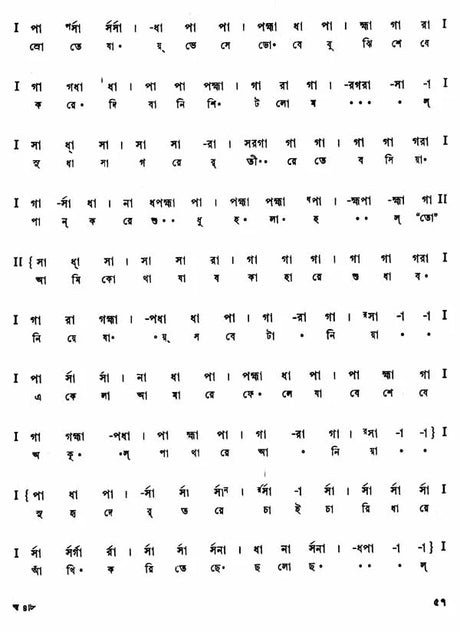 I পা ৰ্পর্সা র্সর্সা । -ধা পা পা । পক্ষা ধা পা । হ্মা গা রা I
স্রো তে যা॰ য়্ ভে সে ডো॰ বে বু ঝি শে বে
I গা গধা ধা । পা পা পক্ষা । গা রা গা । -রগরা -সা -া I
ক রে॰ দি বা নি শি॰ ট লো ম ॰॰॰ ॰ ল্
I সা ধ্া সা । সা সা -রা । সরগা গা গা । গা গা গরা I
সু ধা সা গ রে র্ তী॰॰ রে তে ব সি য়া॰
I গা -র্সা ধা । না ধপহ্মা পা । পক্ষা পক্ষা ধপা । -হ্মপা -হ্মা গা II
পা ন্ ক রে শু॰॰ ধু হ॰ লা॰ হ ॰॰ ল্ "তো"
II {সা ধ্া সা । সা সা রা । গা গা গা । গা গা গরা I
আ মি কো থা যা ব কা হা রে শু ধা ব॰
I গা রা গহ্মা । -পধা ধা পা । গা -রা গা । সা -া -া I
নি য়ে যা॰ ॰য়্ স বে টা ॰ নি য়া ॰ ॰
I পা র্সা র্সা । না ধা পা । পক্ষা ধা পা । পা হ্মা গা I
এ কে লা আ মা রে ফে॰ লে যা বে শে বে
I গা গহ্মা -পধা । পা হ্মা পা । গা -রা গা । সা -া -া} I
অ কূ॰ ॰ল্ পা থা রে আ ॰ নি য়া ॰ ॰
I {পা ধা পা । -র্সা র্সা র্সা । র্সা -া র্সা । র্সা র্সা র্সা I
সু হৃ দে র্ ত রে চা ই চা রি ধা রে
I র্সা র্সর্গা র্রা । র্সা র্সা র্সনা । ধা না র্সনা । -ধপা -া -া} I
আঁ খি॰ ক রি তে ছে॰ ছ লো ছ॰ ॰॰ ॰ ল্
৫৭